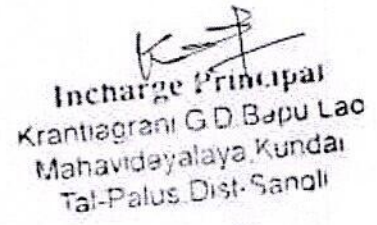 Incharge Principal
Krantiagrani G.D.Bapu Lad
Mahavidayalaya,Kundal
Tal-Palus.Dist-Sangli